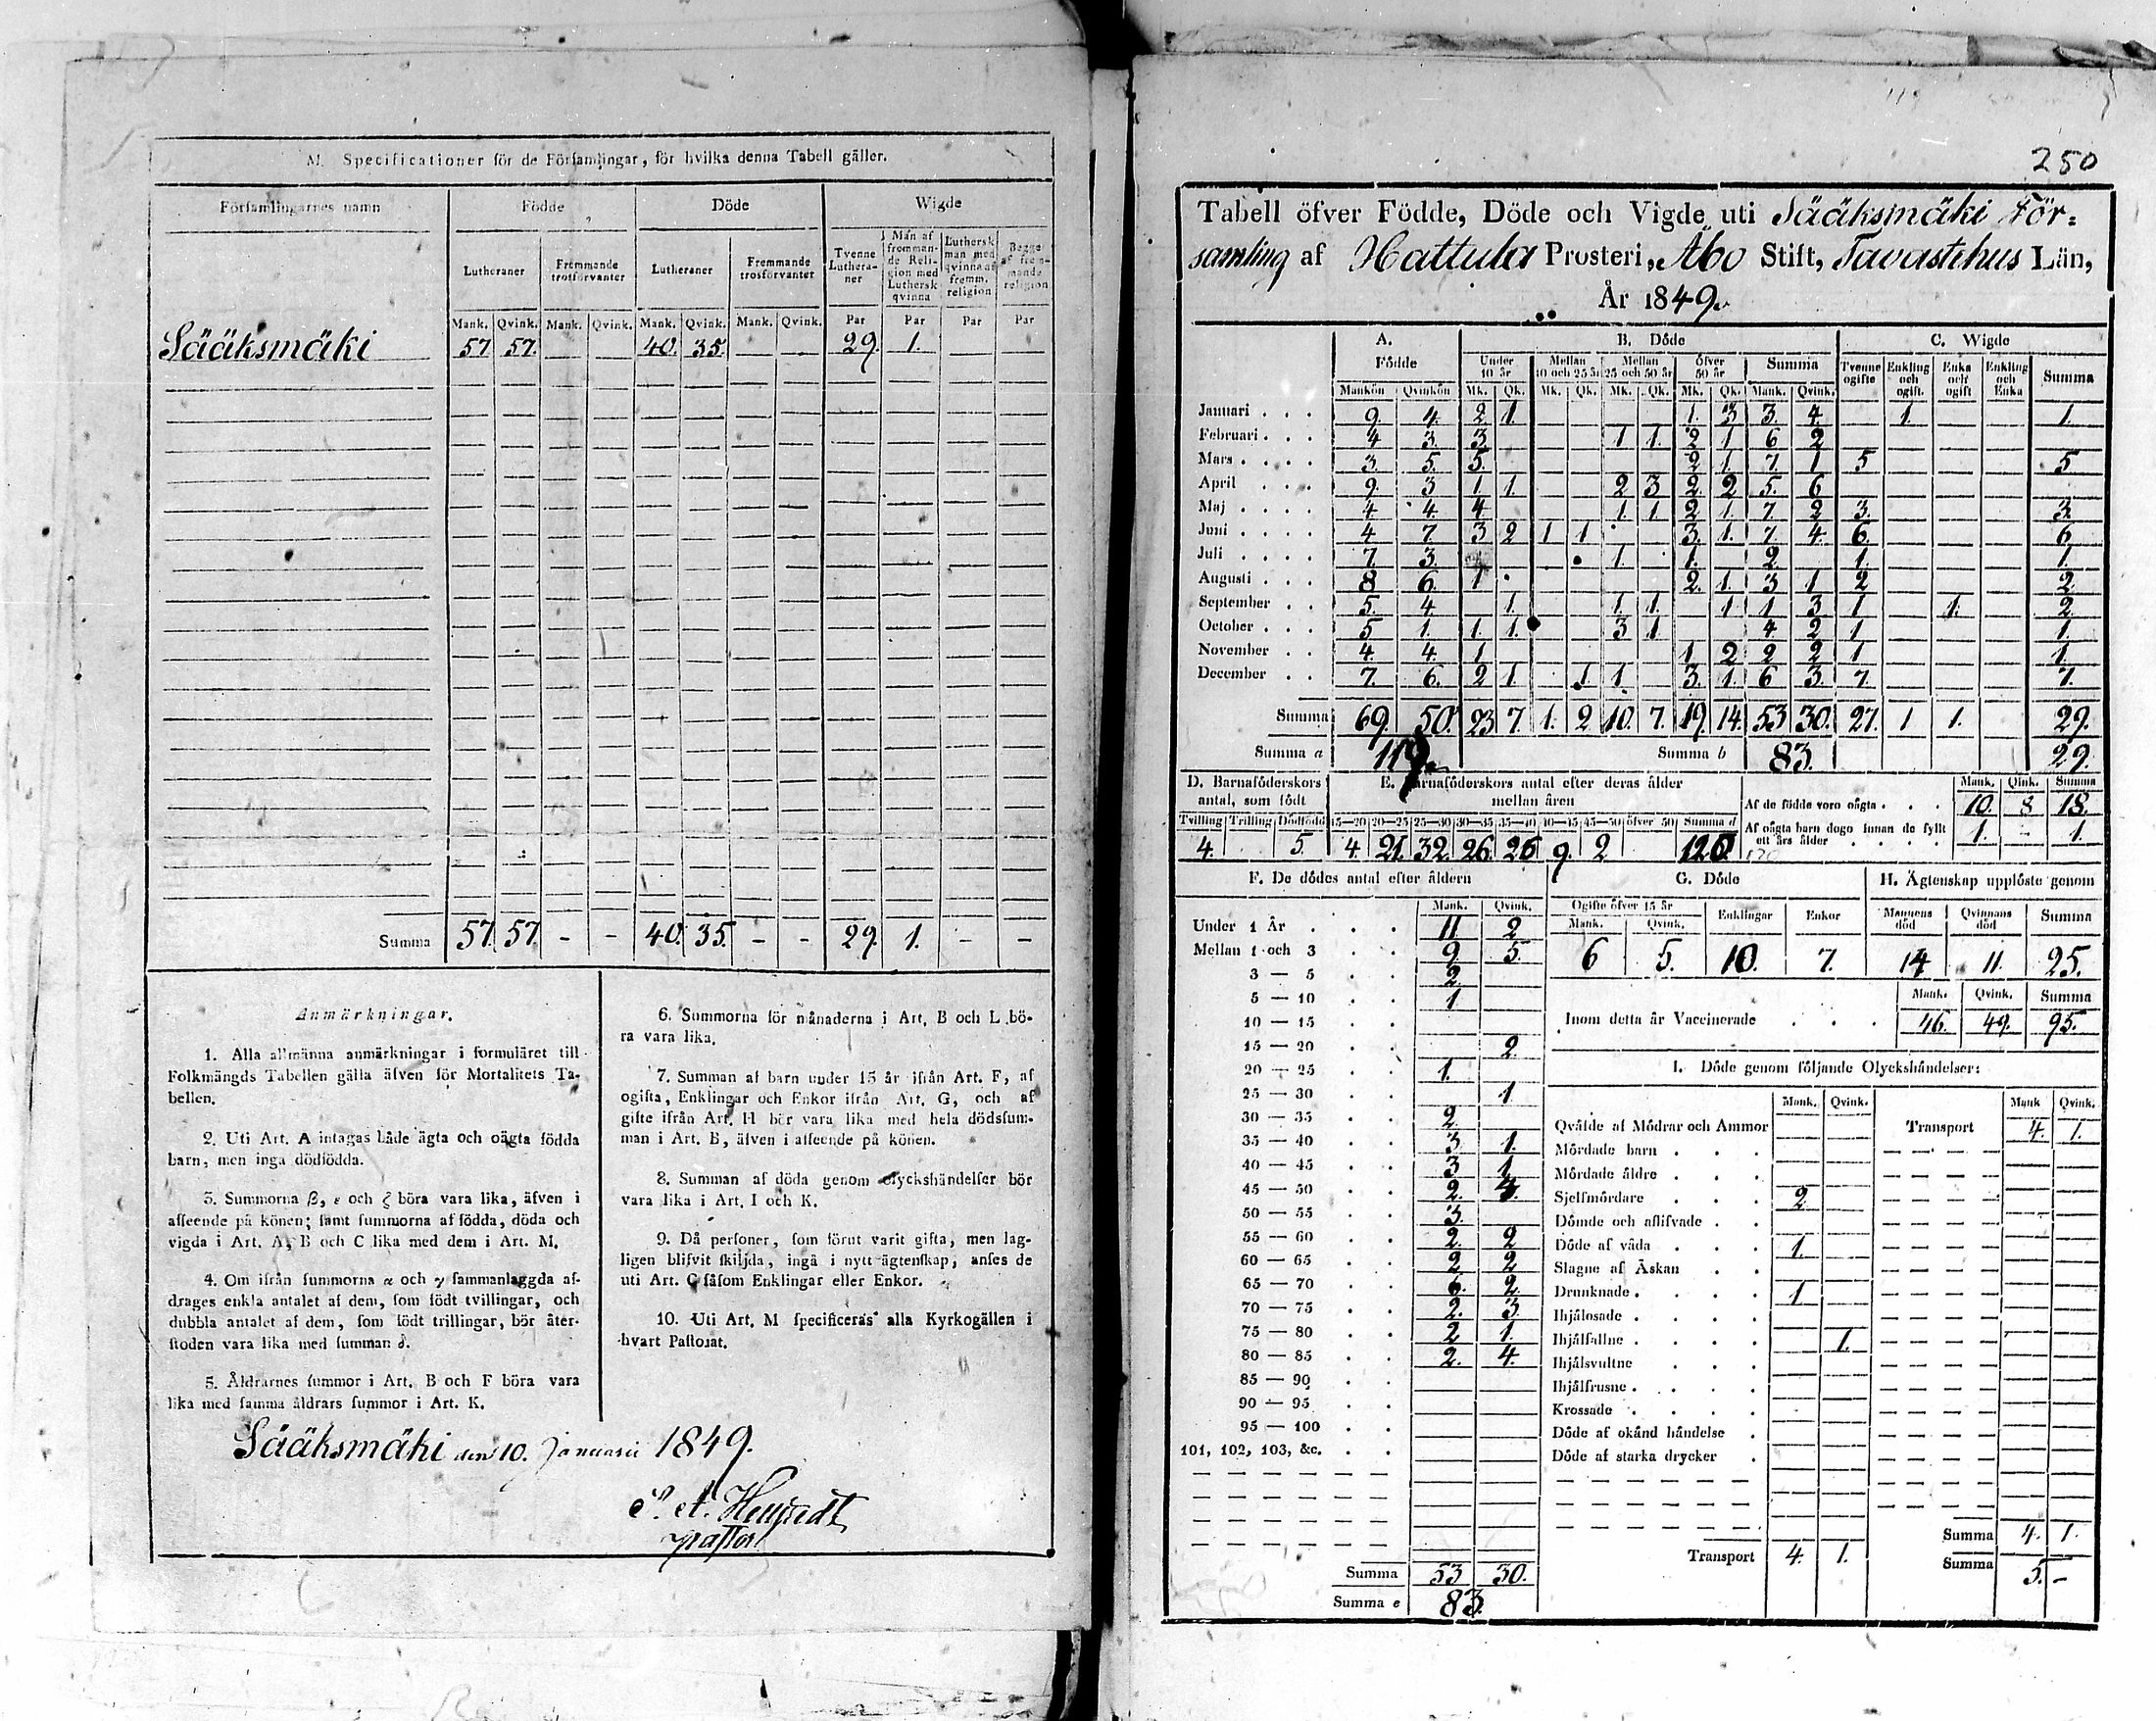 M. Specificationer för de Församlingar, för hvilka denna Tabell gäller.
Församlingarnes namn Födde Döde Wigde
Lutheraner Främmande trosförvanter Lutheraner Fremmande trosförvanter Tvenne Lutheraner Man af fremmande Religion med Luthersk qvinna Luthersk man med qvinna af fremm. religion Begge af fremmande religion
Mank. Qvink. Mank. Qvink. Mank. Qvink. Mank. Qvink. Par Par Par Par
Sääksmäki 57 57. 40. 35. 29. 1.
Summa 57. 57. - - 40. 35. - - 29. 1. - -
Anmärkningar.
1. Alla allmänna anmärkningar i formuläret till
Folkmängds Tabellen gälla äfven för Mortalitets Ta-
bellen.
2. Uti Art. A intagas både ägta och oägta födda
barn, men inga dödfödda.
3. Summorna β, ε och ζ böra vara lika, äfven i
afseende på könen; samt summorna af födda, döda och
vigda i Art. A, B och C lika med dem i Art. M.
4. Om ifrån summorna α och γ sammanlaggda af-
drages enkla antalet af dem, som födt tvillingar, och
dubbla antalet af dem, som födt trillingar, bör åter-
stoden vara lika med summan δ.
5. Åldrarnes summor i Art. B och F böra vara
lika med samma åldrars summor i Art. K.
6. Summorna för månaderna i Art. B och L bö-
ra vara lika.
7. Summan af barn under 15 år ifrån Art. F, af
ogifta, Enklingar och Enkor ifrån Art. G, och af
gifte ifrån Art. H bör vara lika med hela dödssum-
man i Art. B, äfven i afseende på könen.
8. Summan af döda genom olyckshändelser bör
vara lika i Art. I och K.
9. Då personer, som förut varit gifta, men lag-
ligen blifvit skiljda, ingå i nytt ägtenskap, anses de
uti Art. C såsom Enklingar eller Enkor.
10. Uti Art. M specificeras alla Kyrkogällen i
hvart Pastorat.
Sääksmäki den 10. Januarii 1849.
Pastor
250
Tabell öfver Födde, Döde och Vigde uti Sääksmäki För=
samling af Hattula Prosteri, Åbo Stift, Tavastehus Län,
År 1849.
A. Födde B. Döde C. Wigde
Under 10 år Mellan 10 och 25 år Mellan 25 och 50 år öfver 50 år Summa Tvenne ogifte Enkling och ogift. Enka och ogift Enkling och Enka Summa
Mankön Qvinkön Mk. Qk. Mk. Qk. Mk. Qk. Mk. Qk. Mank. Qvink.
Januari 9. 4. 2 1. 1. 3 3. 4. 1. 1.
Februari 4 3. 3 1 1. 2 1 6 2
Mars 3. 5. 5. 2 1. 7. 1 5 5
April 9. 3 1. 1. 2 3 2. 2 5. 6
Maj 4 4. 4 1. 1 2 1. 7. 2 3. 3.
Juni 4 7. 3 2 1 1 3. 1. 7. 4. 6. 6
Juli 7. 3. 1. 1. 2. 1. 1.
Augusti 8 6. 1 2. 1. 3 1 2 2.
September 5. 4 1. 1 1. 1 1 3 1 1. 2
October 5 1. 1. 1. 3 1 4 2 1 1.
November 4. 4. 1 1 2 2 2 1 1.
December 7. 6. 2 1. 1 1 3. 1. 6 3. 7. 7.
Summa 69. 50. 23 7. 1. 2 10. 7. 19. 14. 53 30. 27. 1 1. 29.
Summa a 119. Summa b 83. 29.
D. Barnaföderskors antal, som födt E. Barnaföderskors antal efter deras ålder mellan åren Mank. Qink. Summa
Af de födde voro oägta 10. 8 18.
Tvilling Trilling Dödfödd 15—20 20—25 25—30 30—35 35—40 40—45 45—50 öfver 50 Summa d Af oägta barn dogo innan de fyllt ett års ålder 1. - 1.
4. 5. 4. 21. 32. 26. 26 9. 2 120.
F. De dödes antal efter åldern G. Döde H. Ägtenskap upplöste genom
Mank. Qvink. Ogifte öfver 15 år Enklingar Enkor Mannens död Qvinnans död Summa
Mank. Qvink.
6 5. 10. 7. 14 11. 25.
Mank. Qvink. Summa
Inom detta år Vaccinerade 46. 49. 95.
Under 1 År 11 2
Mellan 1 och 3 9. 5.
3 — 5 2.
5 — 10 1
10 — 15
15 — 20 2.
20 — 25 1.
25 — 30 1
30 — 35 2.
35 — 40 3 1.
40 — 45 3 1
45 — 50 2.
50 — 55 3.
55 — 60 2. 2
60 — 65 2 2
65 — 70 6. 2
70 — 75 2. 3.
75 — 80 2 1.
80 — 85 2. 4.
85 — 90
90 — 95
95 — 100
101, 102, 103, &c.
Summa 53 30.
Summa e 83.
I. Döde genom följande Olyckshändelser:
Mank. Qvink. Mank Qvink.
Qväfde af Mödrar och Ammor Transport 4. 1.
Mördade barn
Mördade äldre
Sjelfmördare 2.
Dömde och aflifvade
Döde af våda 1.
Slagne af Åskan
Drunknade 1
Ihjälosade
Ihjälfallne 1.
Ihjälsvultne
Ihjälfrusne
Krossade
Döde af okänd händelse
Döde af starka drycker
Summa 4. 1.
Transport 4. 1. Summa 5. -